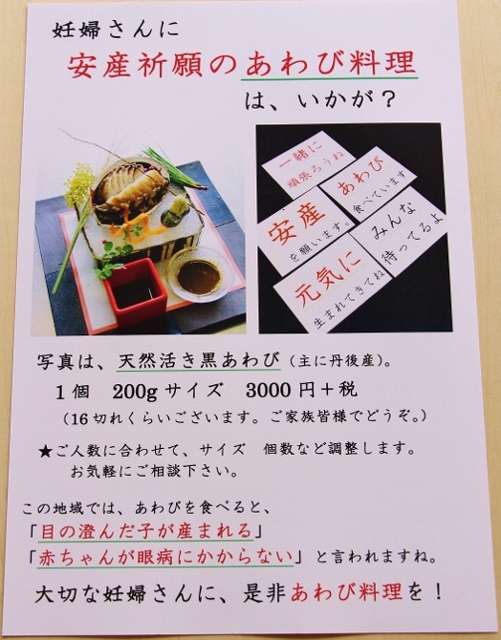 妊婦さんに
安産祈願のあわび料理
は、いかが？
一緒に
頑張ろうね
あわび
食べています
安産
を願います。
みんな
待ってるよ
元気に
生まれてきてね
写真は、天然活き黒あわび（主に丹後産）。
1個　200gサイズ　3000円＋税
（16切れくらいございます。ご家族皆様でどうぞ。）
★ご人数に合わせて、サイズ　個数など調整します。
お気軽にご相談下さい。
この地域では、あわびを食べると、
「目の澄んだ子が産まれる」
「赤ちゃんが眼病にかからない」と言われますね。
大切な妊婦さんに、是非あわび料理を！